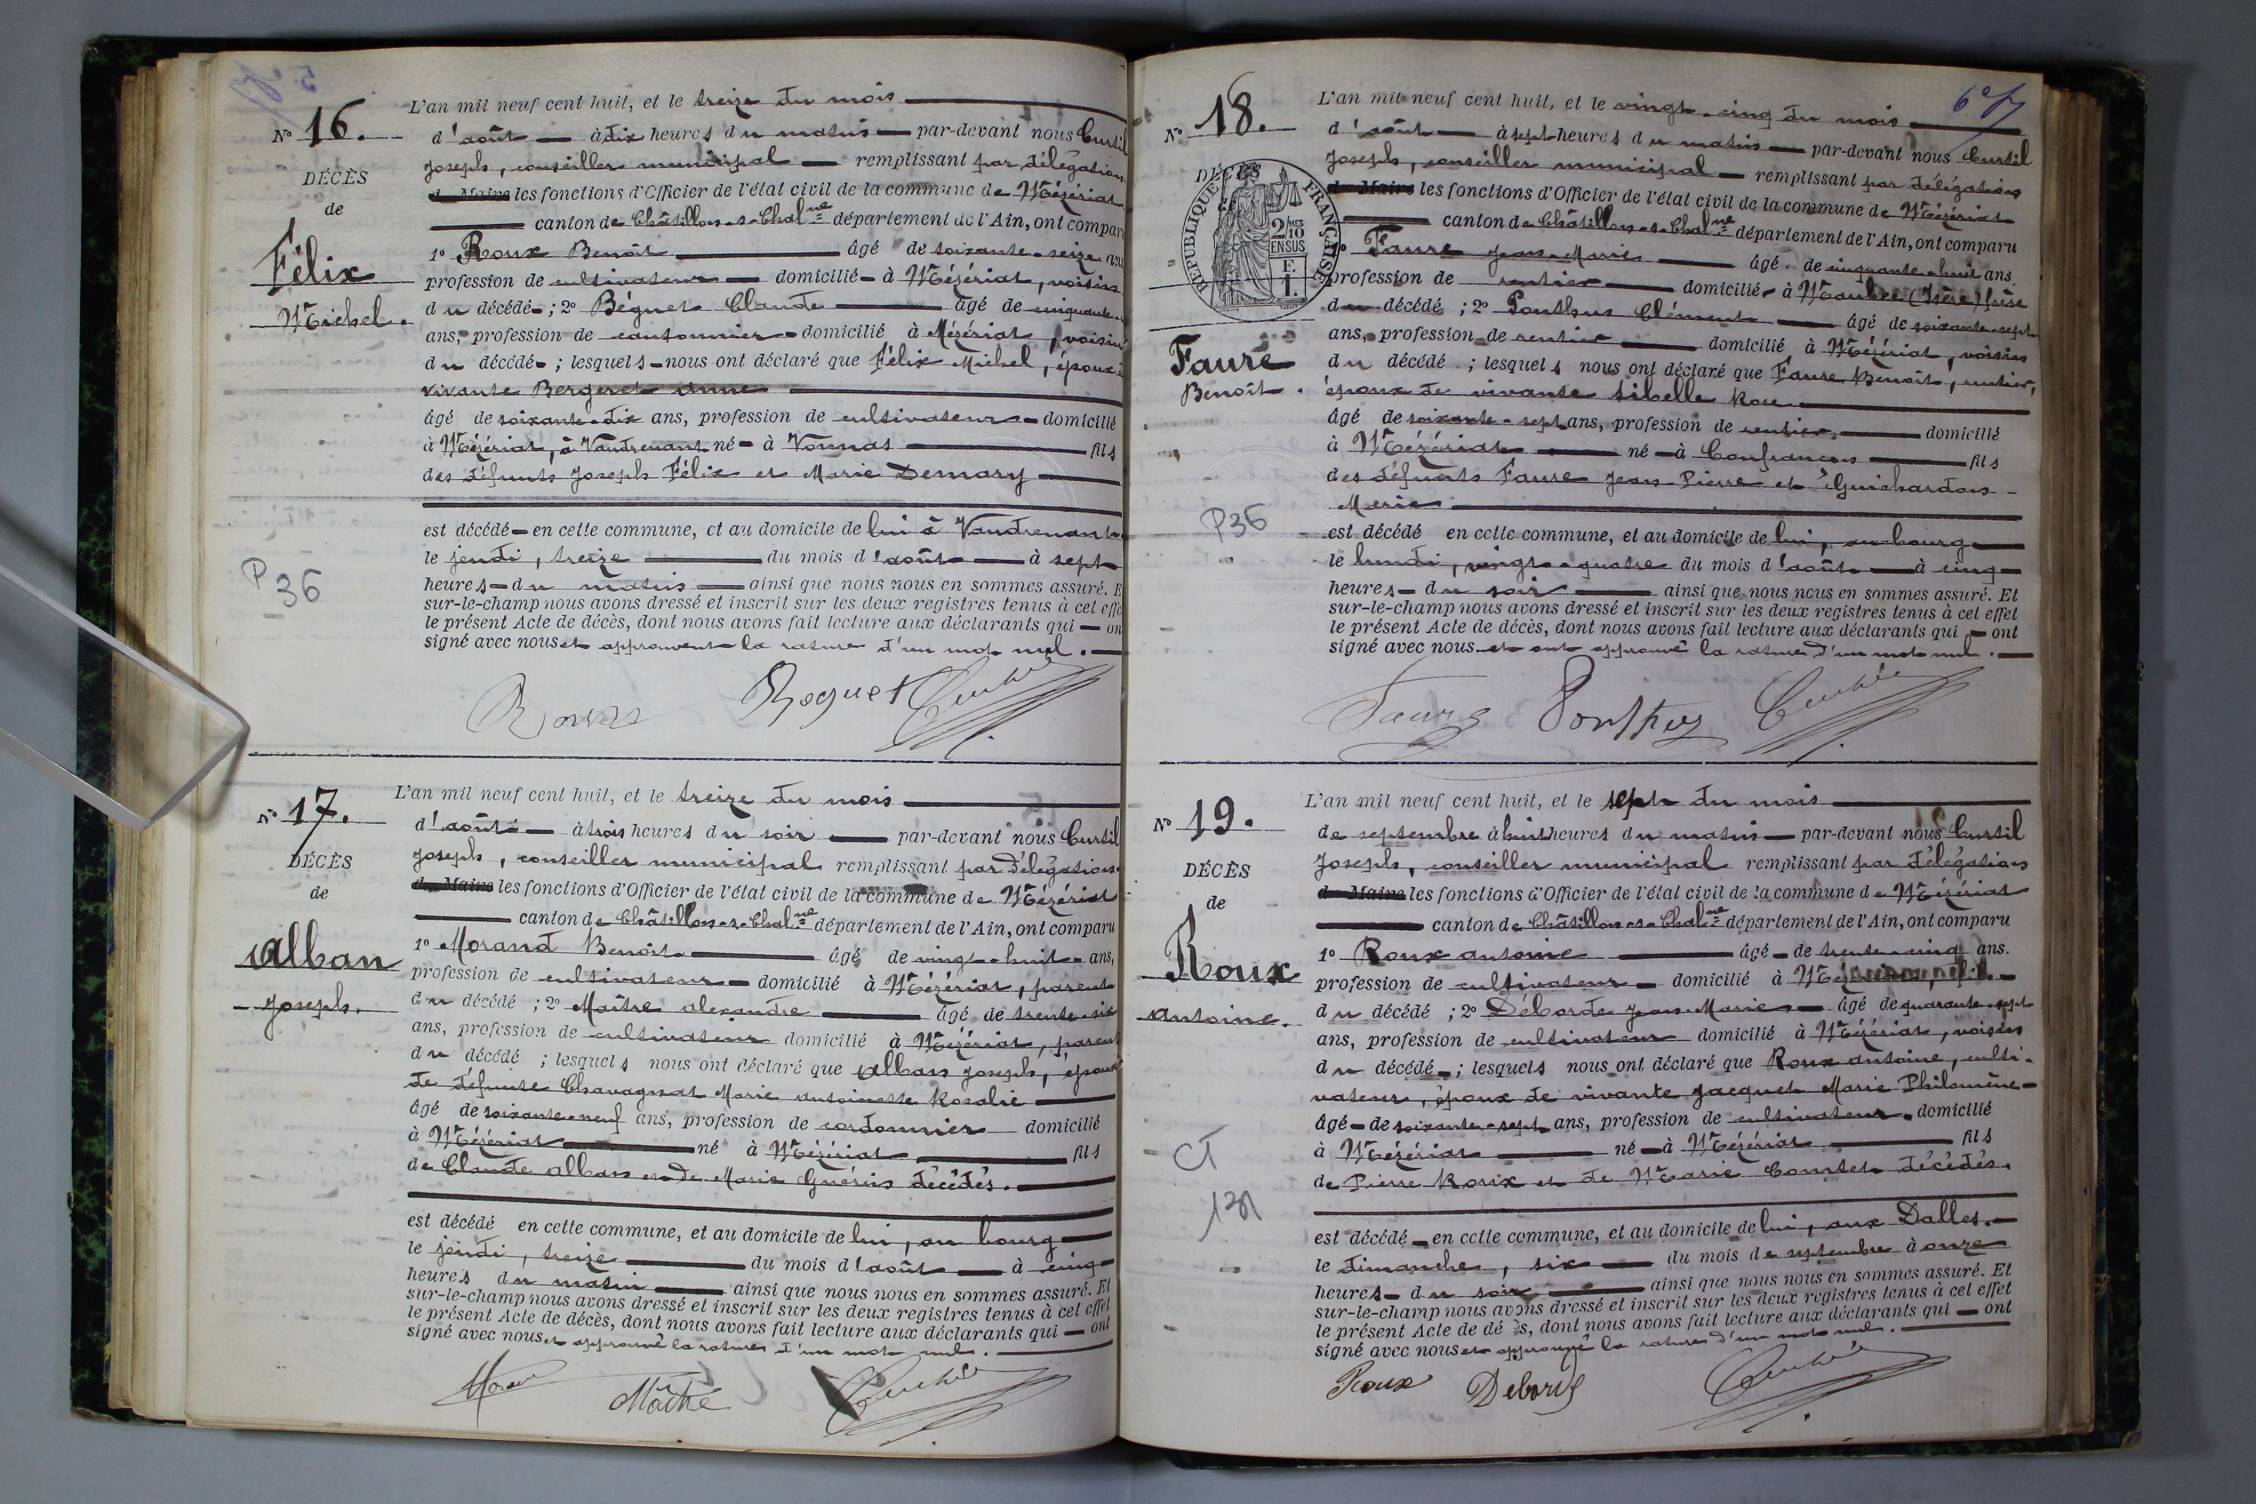 5e
N° 16.
DÉCÈS
de
Félix
Michel.
P
36
L'an mil neuf cent huit, et le treize du mois
d'août à dix heures du matin par-devant nous Curtil
Joseph, conseiller municipal remplissant par délégation
du Maire les fonctions d'Officier de l'état civil de la commune de Mézériat
canton de Châtillon-s-Chalne département de l'Ain, ont compar
1° Roux Benoît âgé de soixante-seize ans
profession de cultivateur domicilié à Mézériat, voisin
du décédé ; 2° Béguet Claude âgé de cinquante
ans, profession de cantonnier domicilié à Mézériat, voisin
du décédé ; lesquels nous ont déclaré que Félix Michel, époux
vivante Bergeret Anne
âgé de soixante-dix ans, profession de cultivateur domicilié
à Mézériat, à Vaudrenant né à Vonnas fils
des défunts Joseph Félix et Marie Demary
est décédé en cette commune, et au domicile de lui à Vaudrenant
le jeudi, treize du mois d'août à sept
heures du matin ainsi que nous nous en sommes assuré. E
sur-le-champ nous avons dressé et inscrit sur les deux registres tenus à cet effe
le présent Acte de décès, dont nous avons fait lecture aux déclarants qui on
signé avec nous et approuvent la rature d'un mot nul.
Roux Beguet
N° 17.
DÉCÈS
de
Alban
Joseph.
L'an mil neuf cent huit, et le treize du mois
d'août à trois heures du soir par-devant nous Curtil
Joseph, conseiller municipal remplissant par délégation
du Maire les fonctions d'Officier de l'état civil de la commune de Mézériat
canton de Châtillon-s-Chalne département de l'Ain, ont comparu
1° Morand Benoît âgé de vingt-huit ans,
profession de cultivateur domicilié à Mézériat, parent
du décédé ; 2° Maître Alexandre âgé de trente-six
ans, profession de cultivateur domicilié à Mézériat, parent
du décédé ; lesquels nous ont déclaré que Alban Joseph, époux
de défunte Chavagnat Marie Antoinette Rosalie
âgé de soixante-neuf ans, profession de cordonnier domicilié
à Mézériat né à Mézériat fils
de Claude Alban et de Marie Guérin décédés.
est décédé en cette commune, et au domicile de lui, au bourg
le jeudi, treize du mois d'août à cinq
heures du matin ainsi que nous nous en sommes assuré. Et
sur-le-champ nous avons dressé et inscrit sur les deux registres tenus à cet effet
le présent Acte de décès, dont nous avons fait lecture aux déclarants qui ont
signé avec nous et approuvé la rature d'un mot nul.
Maître
6e
N° 18.
DÉCÈS
REPUBLIQUE FRANÇAISE
2 MES 10
EN SUS
F.
1.
Faure
Benoît.
P36
L'an mil neuf cent huit, et le vingt-cinq du mois
d'août à sept heures du matin par-devant nous Curtil
Joseph, conseiller municipal remplissant par délégation
du Maire les fonctions d'Officier de l'état civil de la commune de Mézériat
canton de Châtillon-s-Chalne département de l'Ain, ont comparu
1° Faure Jean-Marie âgé de cinquante-huit ans
profession de rentier domicilié à (Isère) frère
du décédé ; 2° Ponthus Clément âgé de soixante-sept
ans, profession de rentier domicilié à Mézériat, voisin
du décédé ; lesquels nous ont déclaré que Faure Benoît, rentier,
époux de vivante Sibelle Rose
âgé de soixante-sept ans, profession de rentier, domicilié
à Mézériat né à Confrançon fils
des défunts Faure Jean Pierre et Guichardon
Marie
est décédé en cette commune, et au domicile de lui, au bourg
le lundi, vingt-quatre du mois d'août à cinq
heures du soir ainsi que nous nous en sommes assuré. Et
sur-le-champ nous avons dressé et inscrit sur les deux registres tenus à cet effet
le présent Acte de décès, dont nous avons fait lecture aux déclarants qui ont
signé avec nous et ont approuvé la rature d'un mot nul.
Faure Ponthus
N° 19.
DÉCÈS
de
Roux
Antoine.
CT
L'an mil neuf cent huit, et le sept du mois
de septembre à huit heures du matin par-devant nous Curtil
Joseph, conseiller municipal remplissant par délégation
du Maire les fonctions d'Officier de l'état civil de la commune de Mézériat
canton de Châtillon-s-Chalne département de l'Ain, ont comparu
1° Roux Antoine âgé de trente-cinq ans.
profession de cultivateur domicilié à Mézériat, fils
du décédé ; 2° Déborde Jean-Marie âgé de quarante-sept
ans, profession de cultivateur domicilié à Mézériat, voisin
du décédé ; lesquels nous ont déclaré que Roux Antoine, culti-
vateur, époux de vivante Jacquet Marie Philomène
âgé de soixante-sept ans, profession de cultivateur domicilié
à Mézériat né à Mézériat fils
de Pierre Roux et de Marie Comtet décédés.
est décédé en cette commune, et au domicile de lui, aux Dalles.
le dimanche, six du mois de septembre à onze
heures du soir ainsi que nous nous en sommes assuré. Et
sur-le-champ nous avons dressé et inscrit sur les deux registres tenus à cet effet
le présent Acte de décès, dont nous avons fait lecture aux déclarants qui ont
signé avec nous et approuvé la rature d'un mot nul.
Roux Debord